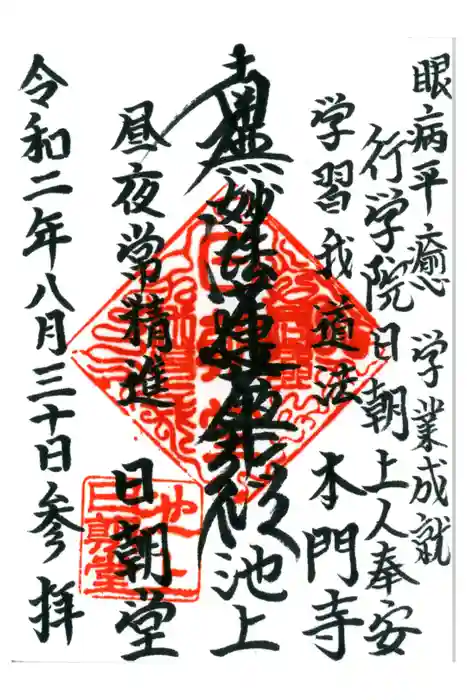 眼病平癒 学業成就
行学院日朝上人奉安
学習我道法 本門寺
南無妙法蓮華経 池上
昼夜常精進 日朝堂
令和二年八月三十日参拝